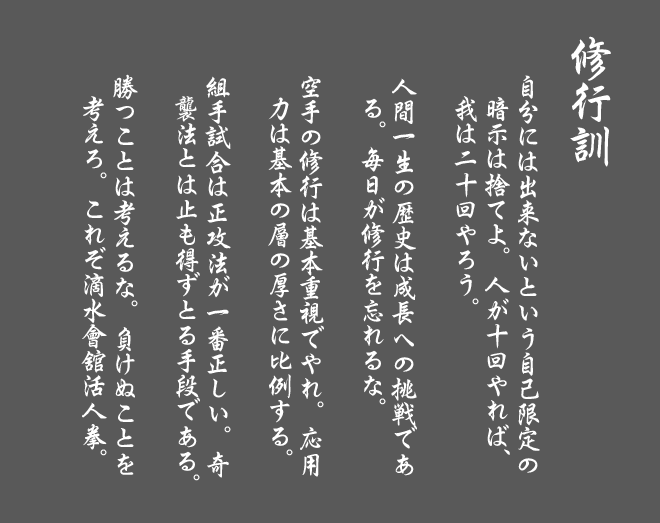 修行訓
自分には出来ないという自己限定の
暗示は捨てよ。人が十回やれば、
我は二十回やろう。
人間一生の歴史は成長への挑戦であ
る。毎日が修行を忘れるな。
空手の修行は基本重視でやれ。応用
力は基本の層の厚さに比例する。
組手試合は正攻法が一番正しい。奇
襲法とは止も得ずとる手段である。
勝つことは考えるな。負けぬことを
考えろ。これぞ滴水會舘活人拳。